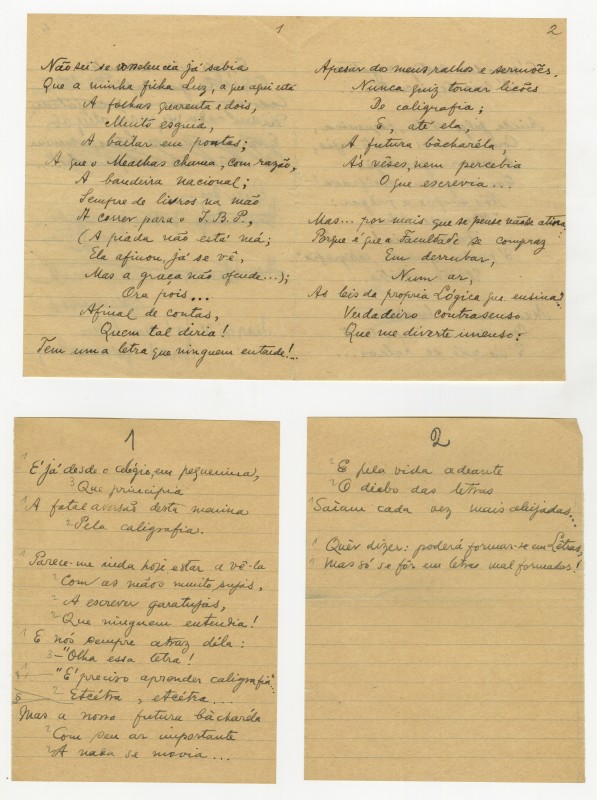 1
Não sei se vosselencia já sabia
Que a minha filha Luz, a que aqui está
A folhas quarenta e dois,
Muito esguia,
A bailar em pontas;
A que o Mealhas chama, com razão,
A bandeira nacional;
Sempre de livros na mão
A correr para o I.B.P.,
(A piáda não está má;
Ela afinou, já se vê,
Mas a graça não ofende...);
Ora pois...
Afinal de contas,
Quem tal diria!
Tem uma letra que ninguem entende!...
2
Apesar dos meus ralhos e sermões,
Nunca quiz tomar licões
De caligrafia;
E, até ela,
A futura bàcharéla,
Ás vêses, nem percebia
O que escrevia...
Mas... por mais que se pense não se atina:
Porque é que a Faculdade se compraz
Em derrubar,
Num ar,
As leis da propria Lógica que ensina?
Verdadeiro contrasenso
Que me diverte imenso:
1
1 E' já desde o colégio, em pequenina,
3 Que principia
1 A fatal aversão desta menina
2 Pela caligrafia.
1 Parece-me inda hoje estar a vê-la
2 Com as mãos muito sujas,
2 A escrever garatujas,
2 Que ninguem entendia!
1 E nós sempre atraz déla:
3 —"Olha essa letra!
—"E' preciso aprender caligrafia"...
2 Etcétra, etcétra...
Mas a nossa futura bàcharéla
2 Com seu ar importante
2 A nada se movia...
2
2 E pela vida adeante
2 O diabo das letras
1 Saíam cada vez mais aleijadas...
1 Quér dizer: poderá formar-se em Létras,
1 Mas só se fôr em letras mal formadas!